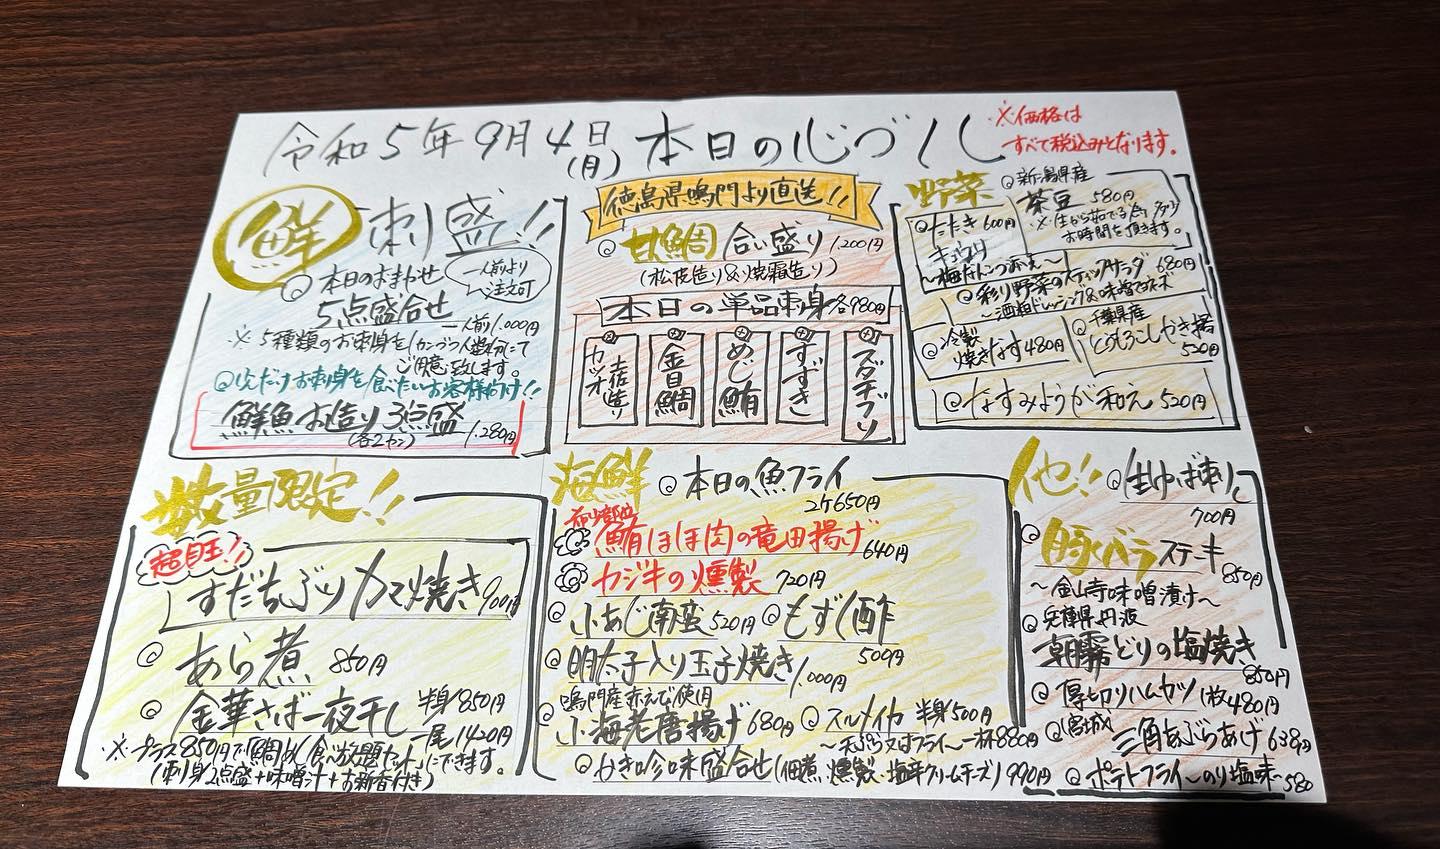 令和5年9月4日(月) 本日の心づくし
※価格は
すべて税込みとなります。
鮮 刺盛!!
本日のおまかせ
5点盛合せ
一人前より
ご注文可
一人前1,000円
※5種類のお刺身を1カンづつ人数分にて
ご用意致します。
お刺身を食べたいお客様向け!!
鮮魚お造り3点盛
(各2カン)
1,280円
徳島県鳴門より直送!!
甘鯛 合い盛り 1,200円
(松皮造り&焼霜造り)
本日の単品刺身 各980円
カツオ
土佐造り
金目鯛
めじ鮪
すずき
スダチブリ
野菜
新潟県産
茶豆 580円
※生から茹でる為
お時間を頂きます。
たたき
キュウリ
600円
彩り野菜のスティックサラダ 680円
～酒粕ドレッシング&味噌マヨネーズ
冷製
焼きなす 480円
千葉県産
とうもろこしかき揚
520円
なすみょうが和え 520円
数量限定!!
超目玉!!
すだちぶりカマ焼き 900円
あら煮 850円
金華さば一夜干し 半身850円
一尾1420円
※プラス850円で鯛めし食べ放題セットにできます。
(刺身2点盛+味噌汁+お新香付き)
海鮮
本日の魚フライ
2ケ650円
希少部位
鮪ほほ肉の竜田揚げ 640円
カジキの燻製 720円
小あじ南蛮 520円
もずく酢
500円
明太子入り玉子焼き 1,000円
鳴門産赤えび使用
小海老唐揚げ 680円
スルメイカ 半身500円
～天ぷら又はフライ～一杯880円
かき珍味盛合せ(佃煮、燻製、塩辛クリームチーズ) 990円
他!!
生ゆば刺し
700円
豚バラステーキ
850円
～金山寺味噌漬け～
兵庫県丹波
朝霧どりの塩焼き
850円
厚切りハムカツ 1枚480円
宮城
三角あぶらあげ 638円
ポテトフライ～のり塩味～580